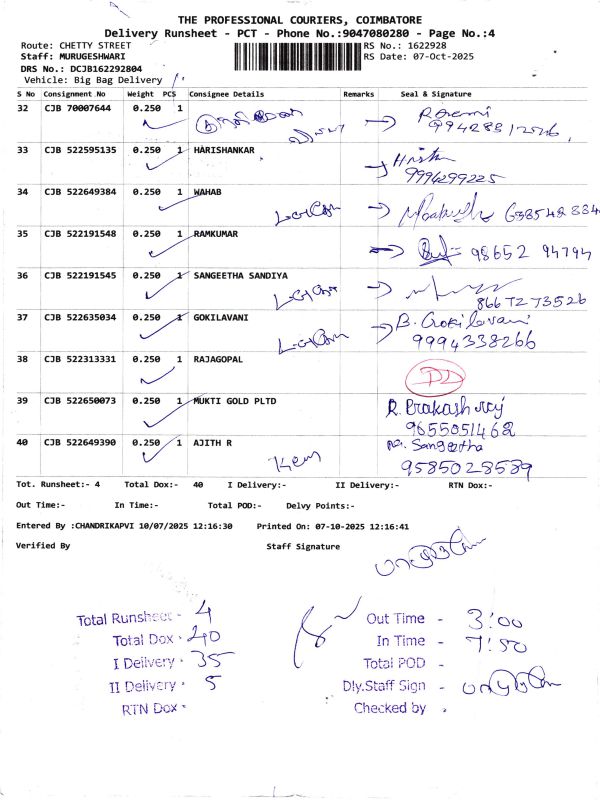 THE PROFESSIONAL COURIERS, COIMBATORE
Delivery Runsheet - PCT - Phone No.:9047080280 - Page No.:4
Route: CHETTY STREET
RS No.: 1622928
Staff: MURUGESHWARI
RS Date: 07-Oct-2025
DRS No.: DCJB162292804
Vehicle: Big Bag Delivery
S No Consignment No Weight PCS Consignee Details Remarks Seal & Signature
32 CJB 70007644 0.250 1
33 CJB 522595135 0.250 1 HARISHANKAR
9994299225
34 CJB 522649384 0.250 1 WAHAB
35 CJB 522191548 0.250 1 RAMKUMAR
98652 94794
36 CJB 522191545 0.250 1 SANGEETHA SANDIYA
86672 73526
37 CJB 522635034 0.250 1 GOKILAVANI
B. Gokilavani
9994338266
38 CJB 522313331 0.250 1 RAJAGOPAL
39 CJB 522650073 0.250 1 MUKTI GOLD PLTD
R. Prakash raj
9655051462
40 CJB 522649390 0.250 1 AJITH R
Sangeetha
9585028589
Tot. Runsheet:- 4 Total Dox:- 40 I Delivery:- II Delivery:- RTN Dox:-
Out Time:- In Time:- Total POD:- Delvy Points:-
Entered By :CHANDRIKAPVI 10/07/2025 12:16:30 Printed On: 07-10-2025 12:16:41
Verified By Staff Signature
Total Runsheet - 4
Total Dox - 40
I Delivery - 35
II Delivery - 5
RTN Dox -
Out Time - 3:00
In Time - 7:50
Total POD -
Dly.Staff Sign -
Checked by -